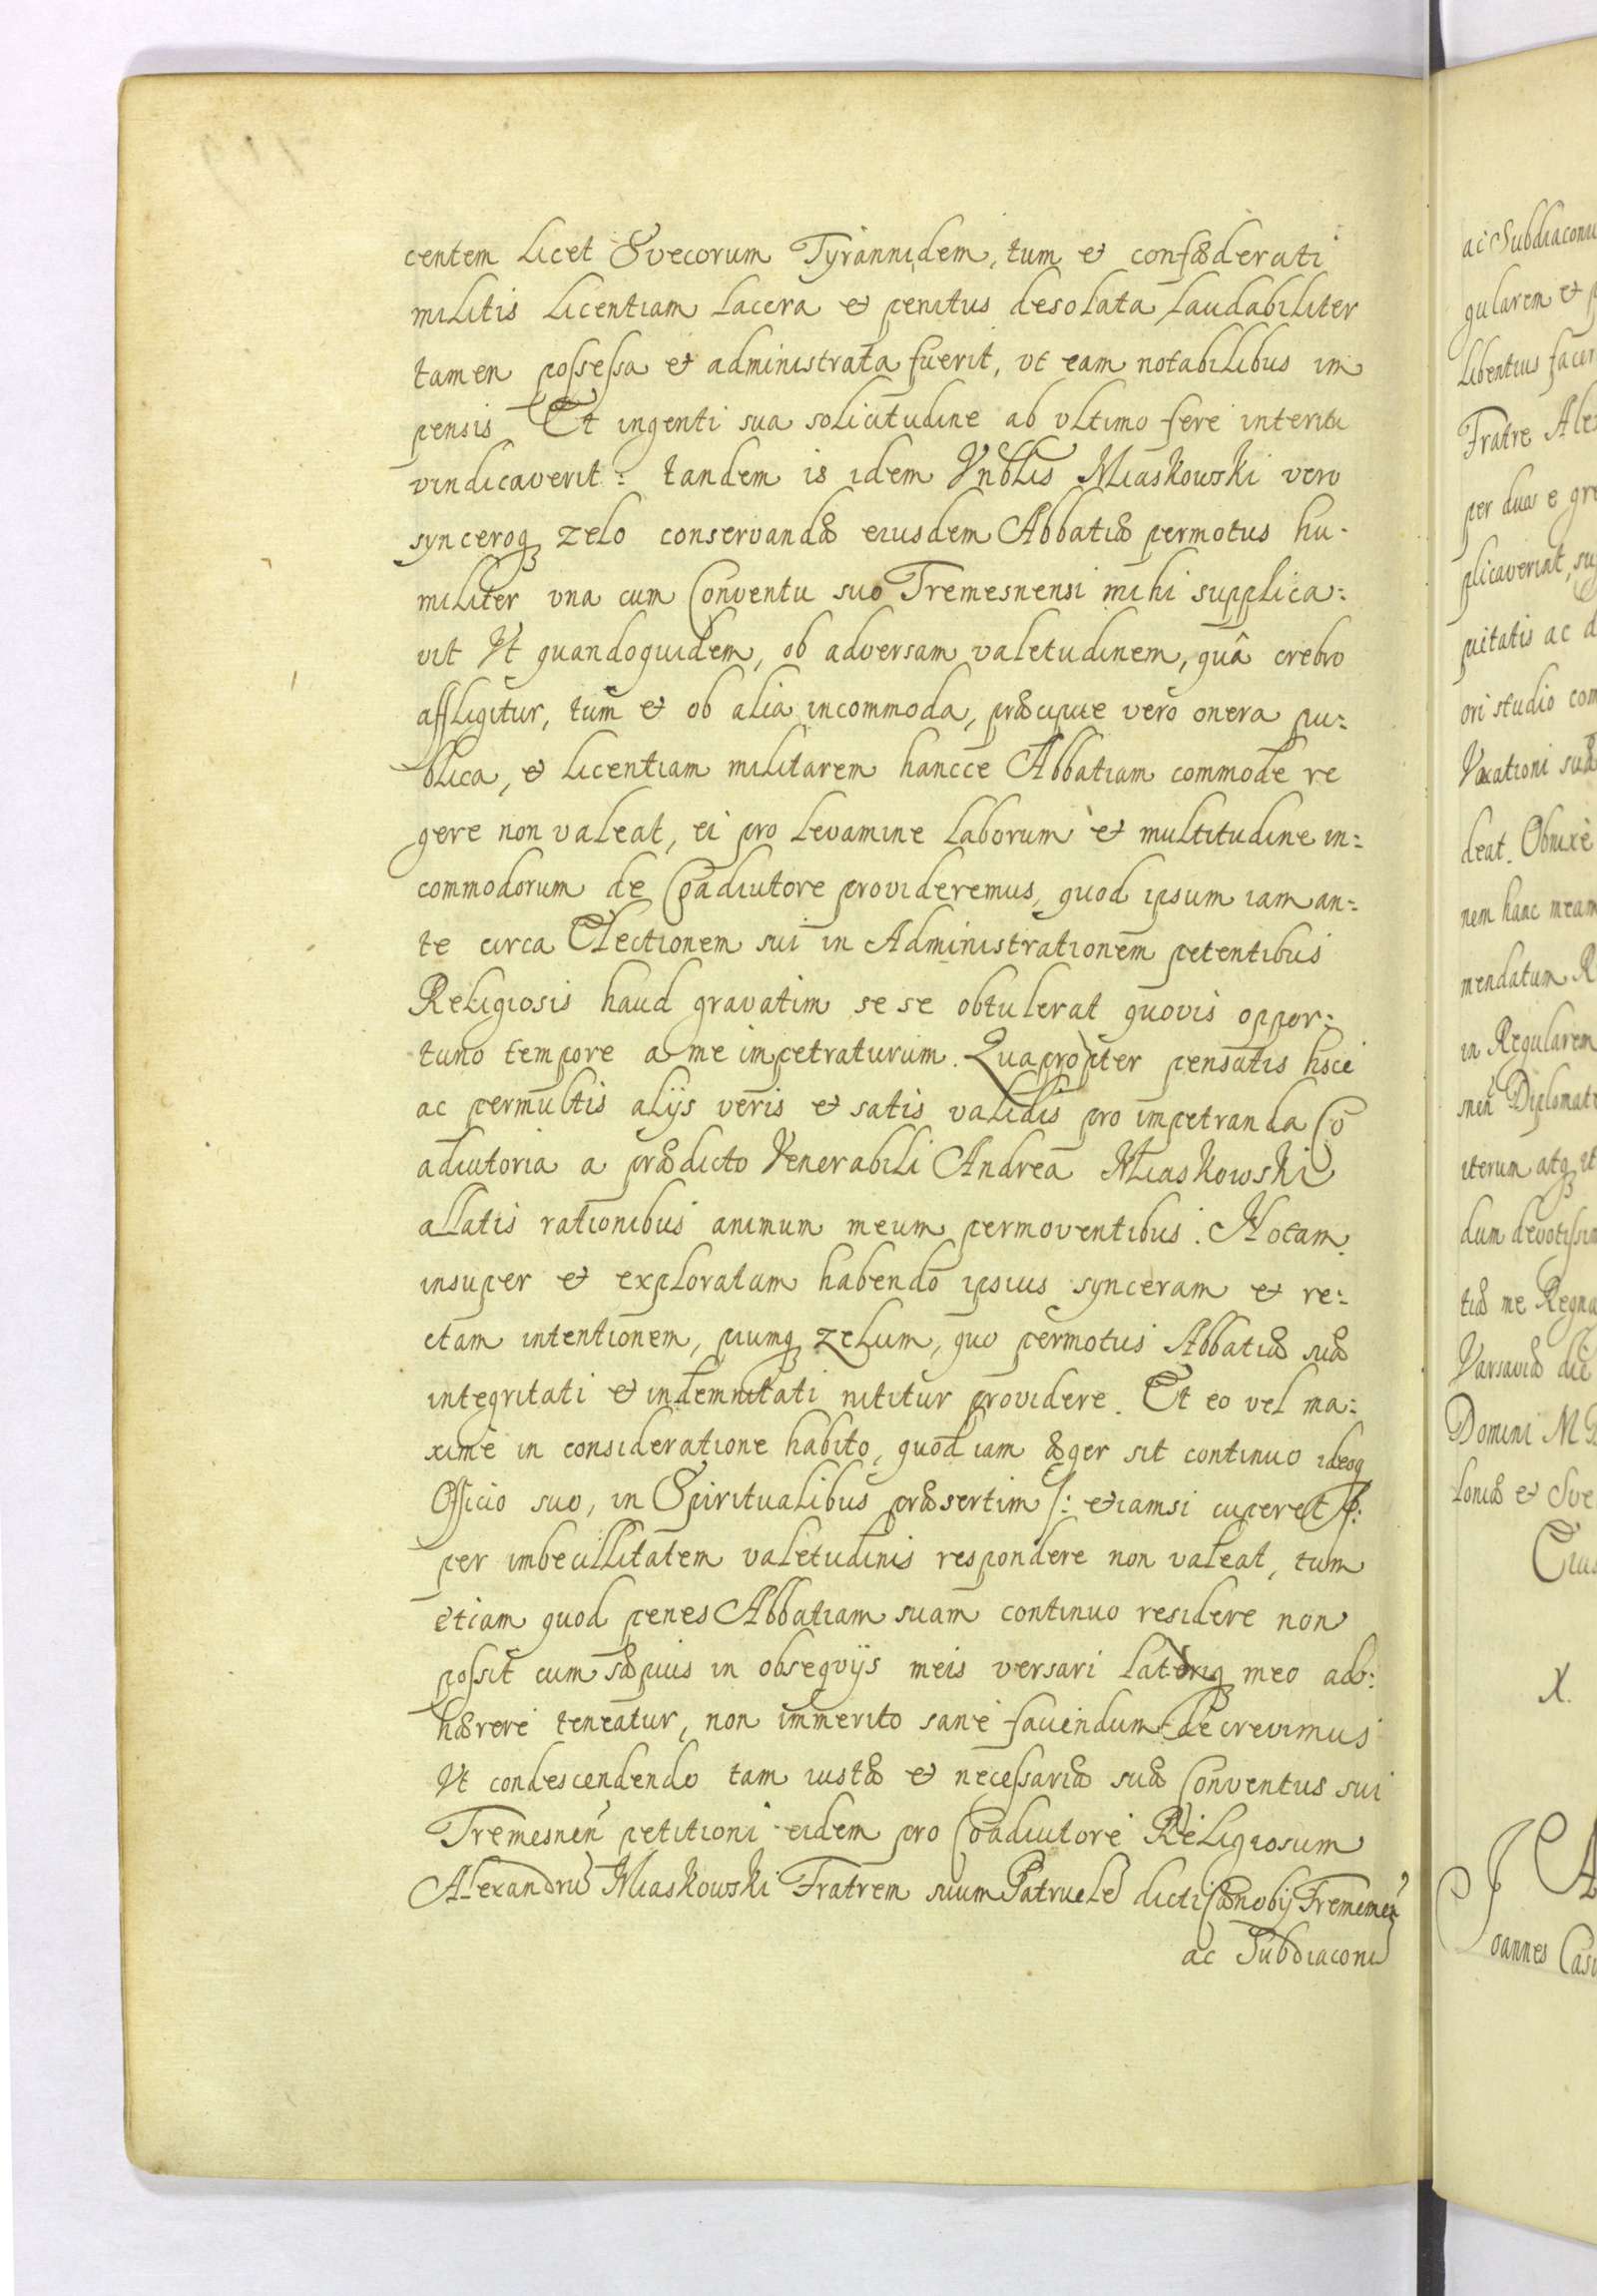 centem licet Svecorum Tyrannidem, tum et confæderati
militis licentiam lacera et penitus desolata laudabiliter
tamen possessa et administrata fuerit, vt eam notabilibus im
pensis Et ingenti sua solicitudine ab vltimo fere interitu
vindicaverit: tandem is idem Vnblis Miaskowski vero
synceroq zelo conservandæ eiusdem Abbatiæ permotus hu-
militer vna cum Conventu suo Tremesnensi mihi supplica:
vit Vt quandoquidem, ob adversam valetudinem, quâ crebro
affligitur, tum et ob alia incommoda, præcipue vero onera pu:
blica, et licentiam militarem hancce Abbatiam commode re
gere non valeat, ei pro levamine laborum et multitudine in:
commodorum de Coadiutore provideremus, quod ipsum iam an:
te circa Electionem sui in Administrationem petentibus
Religiosis haud gravatim se se obtulerat quovis oppor:
tuno tempore a me impetraturum. Quapropter pensatis hsce
ac permultis alijs veris et satis validis pro impetranda Co
adiutoria a prædicto Venerabili Andrea Miaskowski
allatis rationibus animum meum permoventibus. Notam
insuper et exploratam habendo ipsius synceram et re:
ctam intentionem, piumq zelum, quo permotus Abbatiæ suæ
integritati et indemnitati nititur providere. Et eo vel ma:
xime in consideratione habito, quod iam æger sit continuo ideoq
Officio suo, in Spiritualibus præsertim /: etiamsi cuperet /:
per imbecillitatem valetudinis respondere non valeat, tum
etiam quod penes Abbatiam suam continuo residere non
possit cum sæpius in obseqvijs meis versari lateriq meo ad:
hærere teneatur, non immerito sane favendum decrevimus
Vt condescendendo tam iustæ et necessariæ suæ Conventus sui
Tremesnen petitioni eidem pro Coadiutore Religiosum
Alexandrũ Miaskowski Fratrem suum Patruelẽ dicti Cænobij Trememen
ac Subdiaconũ
ac Subdiaconu
gularem et p
libentius facer
Fratre Alex
per duos e gre
plicaverint, su
pietatis ac d
ori studio com
Vocationi suæ
deat. Obnixè
nem hanc meam
mendatum R
in Regularem
snen Diplomat
iterum atq it
dum devotissim
tiæ me Regna
Varsaviæ die
Domini M D
loniæ et Sve
Eius
X.
A
Joannes Casi